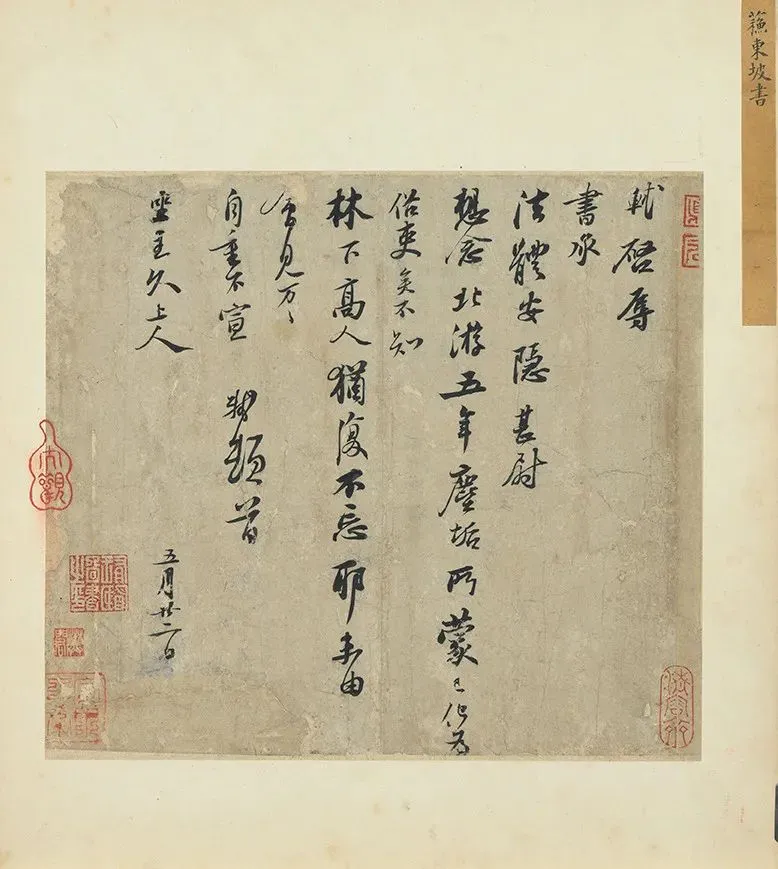 蘓東坡書
軾啓辱
書承
法體安隱甚尉
想念北游五年塵垢所蒙已化為
俗吏矣不知
林下高人猶復不忘耶未由
會見万〻
自重不宣 軾頓首
坐主久上人
五月廿二日